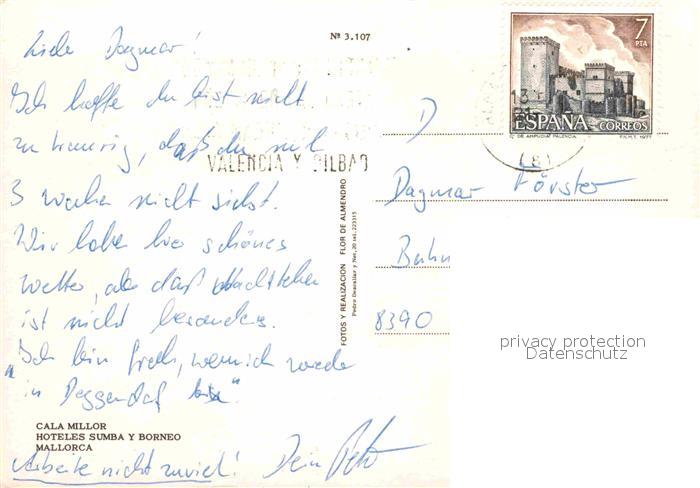 Liebe Dagmar!
Ich hoffe du bist nicht
zu traurig, daß du mich
3 Wochen nicht siehst.
Wir haben hier schönes
Wetter, aber daß Nachtleben
ist nicht besonders.
"Ich bin froh, wenn ich wieder
in Deggendorf bin".
Arbeite nicht zuviel! Dein Peter
CALA MILLOR
HOTELES SUMBA Y BORNEO
MALLORCA
Nº 3.107
VALENCIA Y BILBAO
FOTOS Y REALIZACION FLOR DE ALMENDRO
7
PTA
ESPAÑA CORREOS
Cº DE AMPUDIA PALENCIA F.N.M.T. 1977
13
(8)
D
Dagmar Förster
8390
privacy protection
Datenschutz